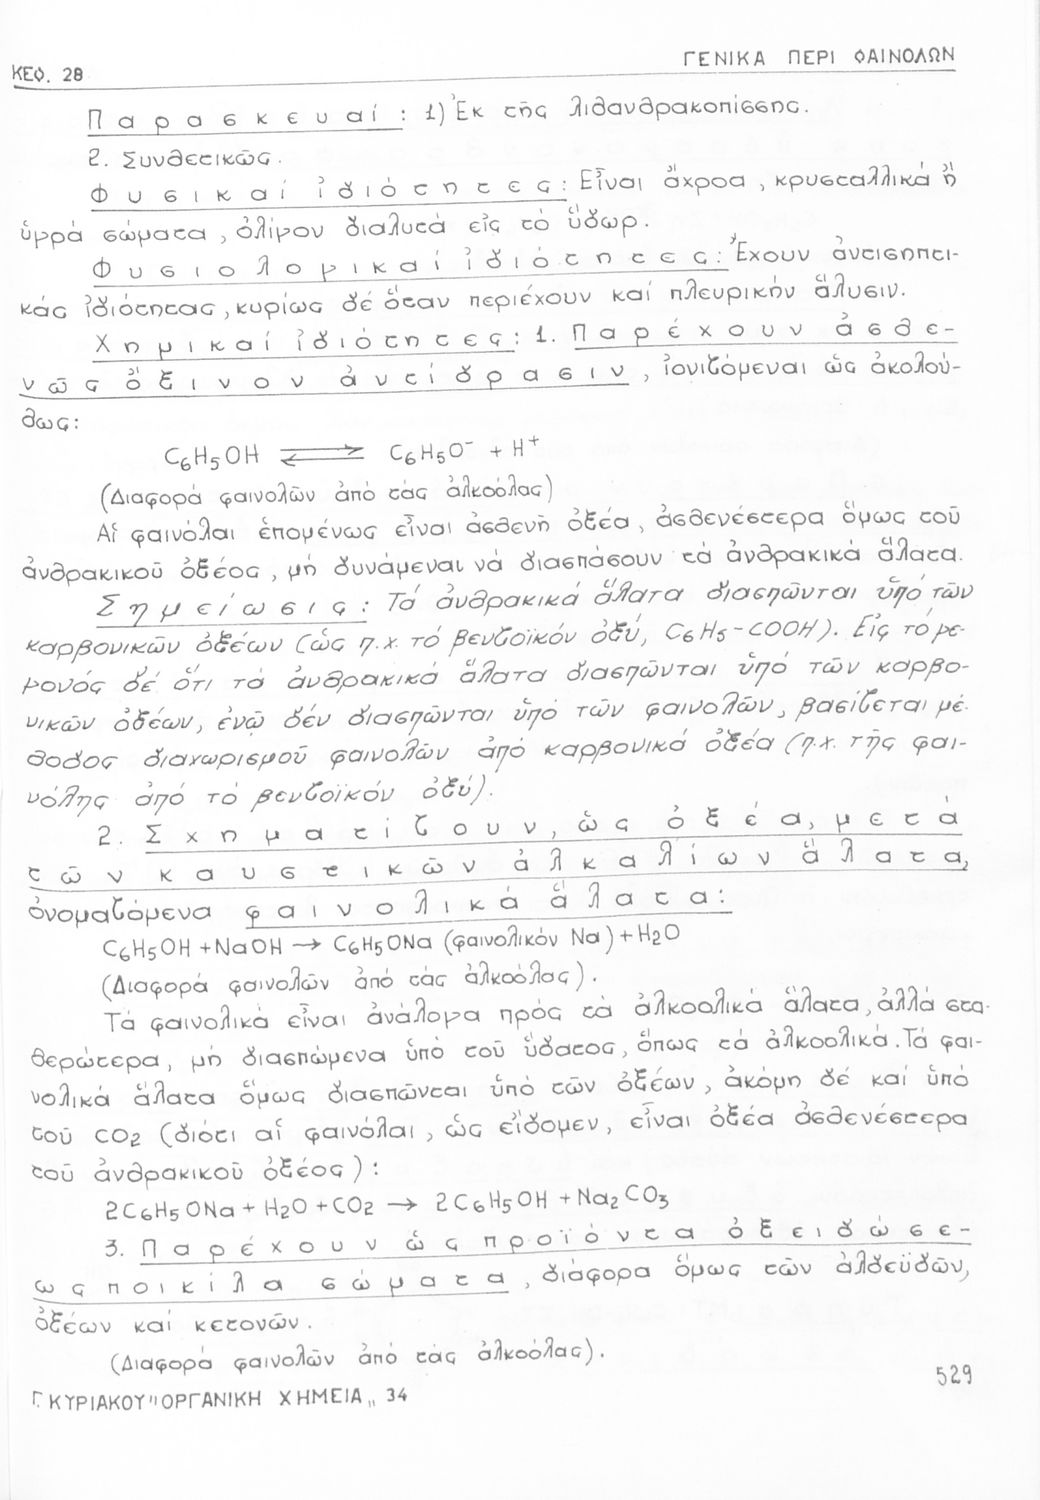 ΚΕΦ. 28
ΓΕΝΙΚΑ ΠΕΡΙ ΦΑΙΝΟΛΩΝ
Παρασκευαί: 1) Ἐκ τῆς λιθανθρακοπίσσης.
2. Συνθετικῶς.
Φυσικαί ἰδιότητες: Εἶναι ἄχροα, κρυσταλλικά ἤ
ὑγρά σώματα, ὀλίγον διαλυτά εἰς τό ὕδωρ.
Φυσιολογικαί ἰδιότητες: Ἔχουν ἀντισηπτι-
κάς ἰδιότητας, κυρίως δέ ὅταν περιέχουν καί πλευρικήν ἄλυσιν.
Χημικαί ἰδιότητες: 1. Παρέχουν ἀσθε-
νῶς ὄξινον ἀντίδρασιν, ἰονιζόμεναι ὡς ἀκολού-
θως:
C6H5OH ⇌ C6H5O⁻ + H⁺
(Διαφορά φαινολῶν ἀπό τάς ἀλκοόλας)
Αἱ φαινόλαι ἑπομένως εἶναι ἀσθενῆ ὀξέα, ἀσθενέστερα ὅμως τοῦ
ἀνθρακικοῦ ὀξέος, μή δυνάμεναι νά διασπάσουν τά ἀνθρακικά ἅλατα.
Σημείωσις: Τά ἀνθρακικά ἅλατα διασπῶνται ὑπό τῶν
καρβονικῶν ὀξέων (ὡς π.χ. τό βενζοϊκόν ὀξύ, C6H5-COOH). Εἰς τό γε-
γονός δέ ὅτι τά ἀνθρακικά ἅλατα διασπῶνται ὑπό τῶν καρβο-
νικῶν ὀξέων, ἐνῷ δέν διασπῶνται ὑπό τῶν φαινολῶν, βασίζεται μέ-
θοδος διαχωρισμοῦ φαινολῶν ἀπό καρβονικά ὀξέα (π.χ. τῆς φαι-
νόλης ἀπό τό βενζοϊκόν ὀξύ).
2. Σχηματίζουν, ὡς ὀξέα, μετά
τῶν καυστικῶν ἀλκαλίων ἅλατα,
ὀνομαζόμενα φαινολικά ἅλατα:
C6H5OH + NaOH → C6H5ONa (φαινολικόν Na) + H2O
(Διαφορά φαινολῶν ἀπό τάς ἀλκοόλας).
Τά φαινολικά εἶναι ἀνάλογα πρός τά ἀλκοολικά ἅλατα, ἀλλά στα-
θερώτερα, μή διασπώμενα ὑπό τοῦ ὕδατος, ὅπως τά ἀλκοολικά. Τά φαι-
νολικά ἅλατα ὅμως διασπῶνται ὑπό τῶν ὀξέων, ἀκόμη δέ καί ὑπό
τοῦ CO2 (διότι αἱ φαινόλαι, ὡς εἴδομεν, εἶναι ὀξέα ἀσθενέστερα
τοῦ ἀνθρακικοῦ ὀξέος):
2C6H5ONa + H2O + CO2 → 2C6H5OH + Na2CO3
3. Παρέχουν ὡς προϊόντα ὀξειδώσε-
ως ποικίλα σώματα, διάφορα ὅμως τῶν ἀλδεϋδῶν,
ὀξέων καί κετονῶν.
(Διαφορά φαινολῶν ἀπό τάς ἀλκοόλας).
529
Γ. ΚΥΡΙΑΚΟΥ "ΟΡΓΑΝΙΚΗ ΧΗΜΕΙΑ„ 34